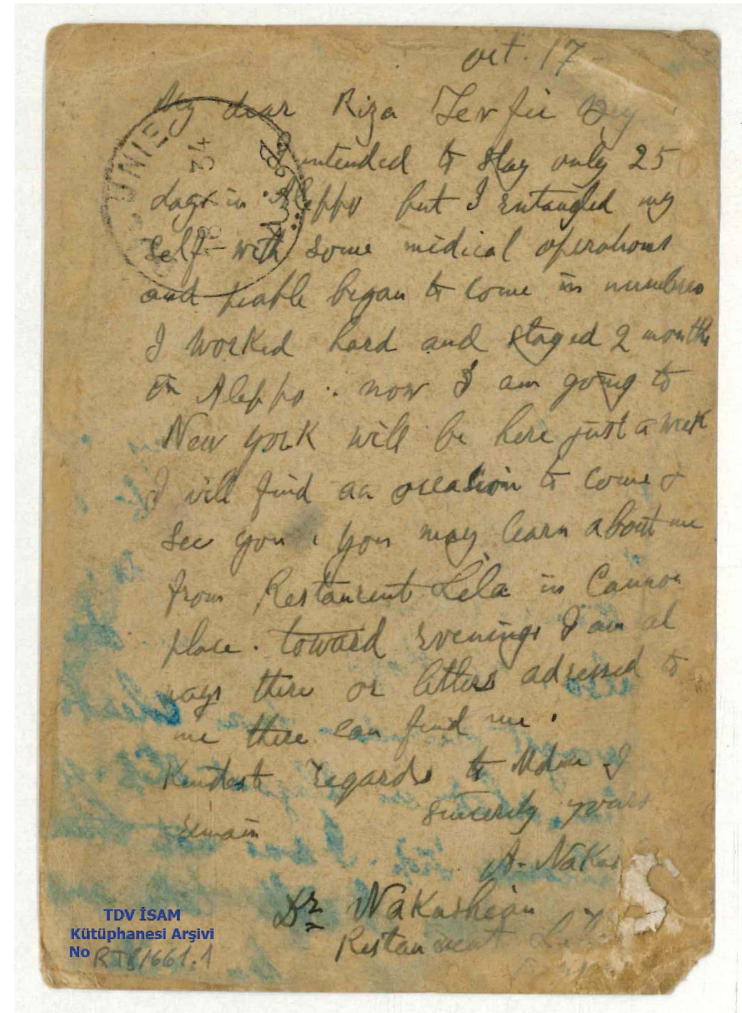 oct. 17
My dear Riza Tevfic Bey
I intended to stay only 25
days in Aleppo but I entangled my
self with some medical operations
and peaple began to come in numbers
I worked hard and stayed 2 months
in Aleppo . now I am going to
New York will be here just a week
I will find an occasion to come &
see you , you may learn about me
from Restaurent Lela in Cannon
place . toward evenings I am al
ways there or letters adressed to
me there can find me .
Kindest regards to Mdme I
remain sincerely yours
A. Nakas
Dr Nakashian
Restaurent
UNIE
34
TDV İSAM
Kütüphanesi Arşivi
No RTB/661.1